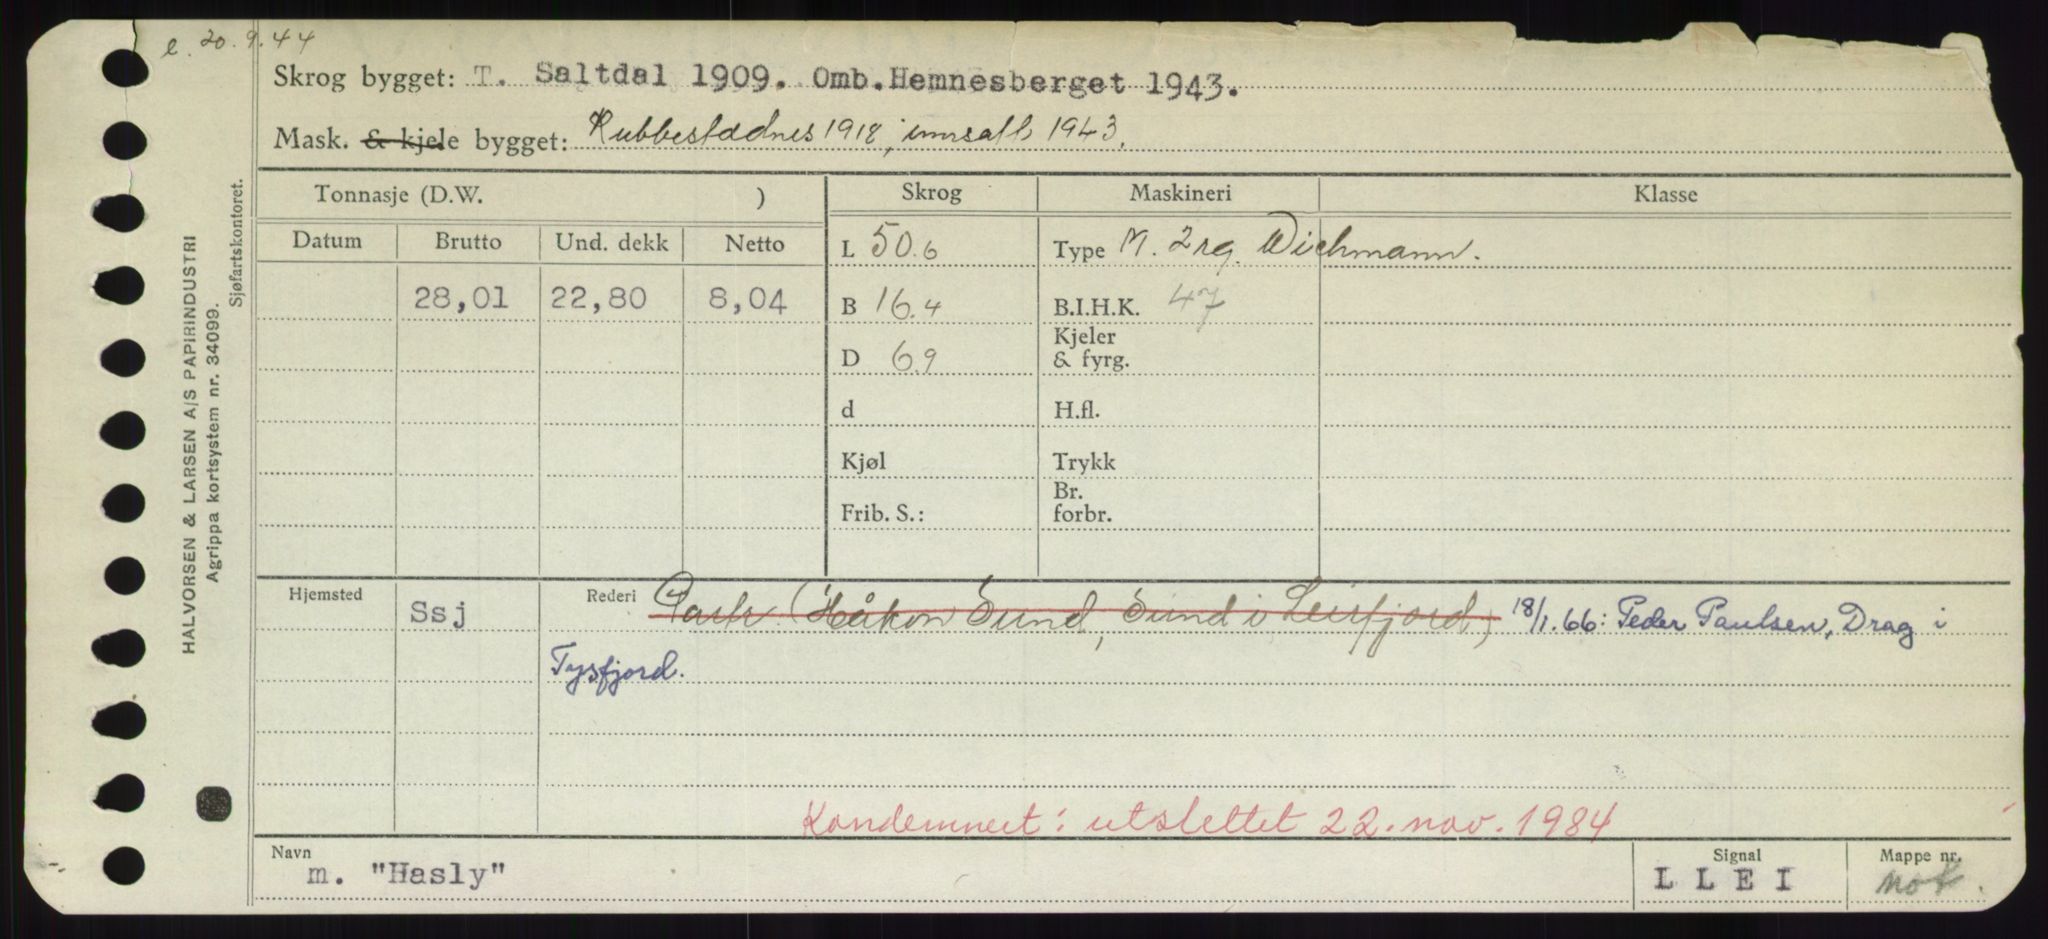 e. 20.9.44
Skrog bygget: T. Saltdal 1909. Omb. Hemnesberget 1943.
Mask. & kjele bygget: Rubbestadnes 1918, innsatt 1943.
HALVORSEN & LARSEN A/S PAPIRINDUSTRI
Agrippa kortsystem nr. 34099.
Sjøfartskontoret.
Tonnasje (D.W. ) Skrog Maskineri Klasse
Datum Brutto Und. dekk Netto L 50.6 Type M. 2 rg. Wichmann.
28,01 22,80 8,04 B 16.4 B.I.H.K. 47
D 6.9 Kjeler & fyrg.
d H.fl.
Kjøl Trykk
Frib. S.: Br. forbr.
Hjemsted Ssj Rederi Partr. (Håkon Sund, Sund i Leirfjord) 18/1.66: Peder Paulsen, Drag i
Tysfjord.
Kondemnert: utslettet 22. nov. 1984
Navn Signal Mappe nr.
m. "Hasly" L L E I Nok.